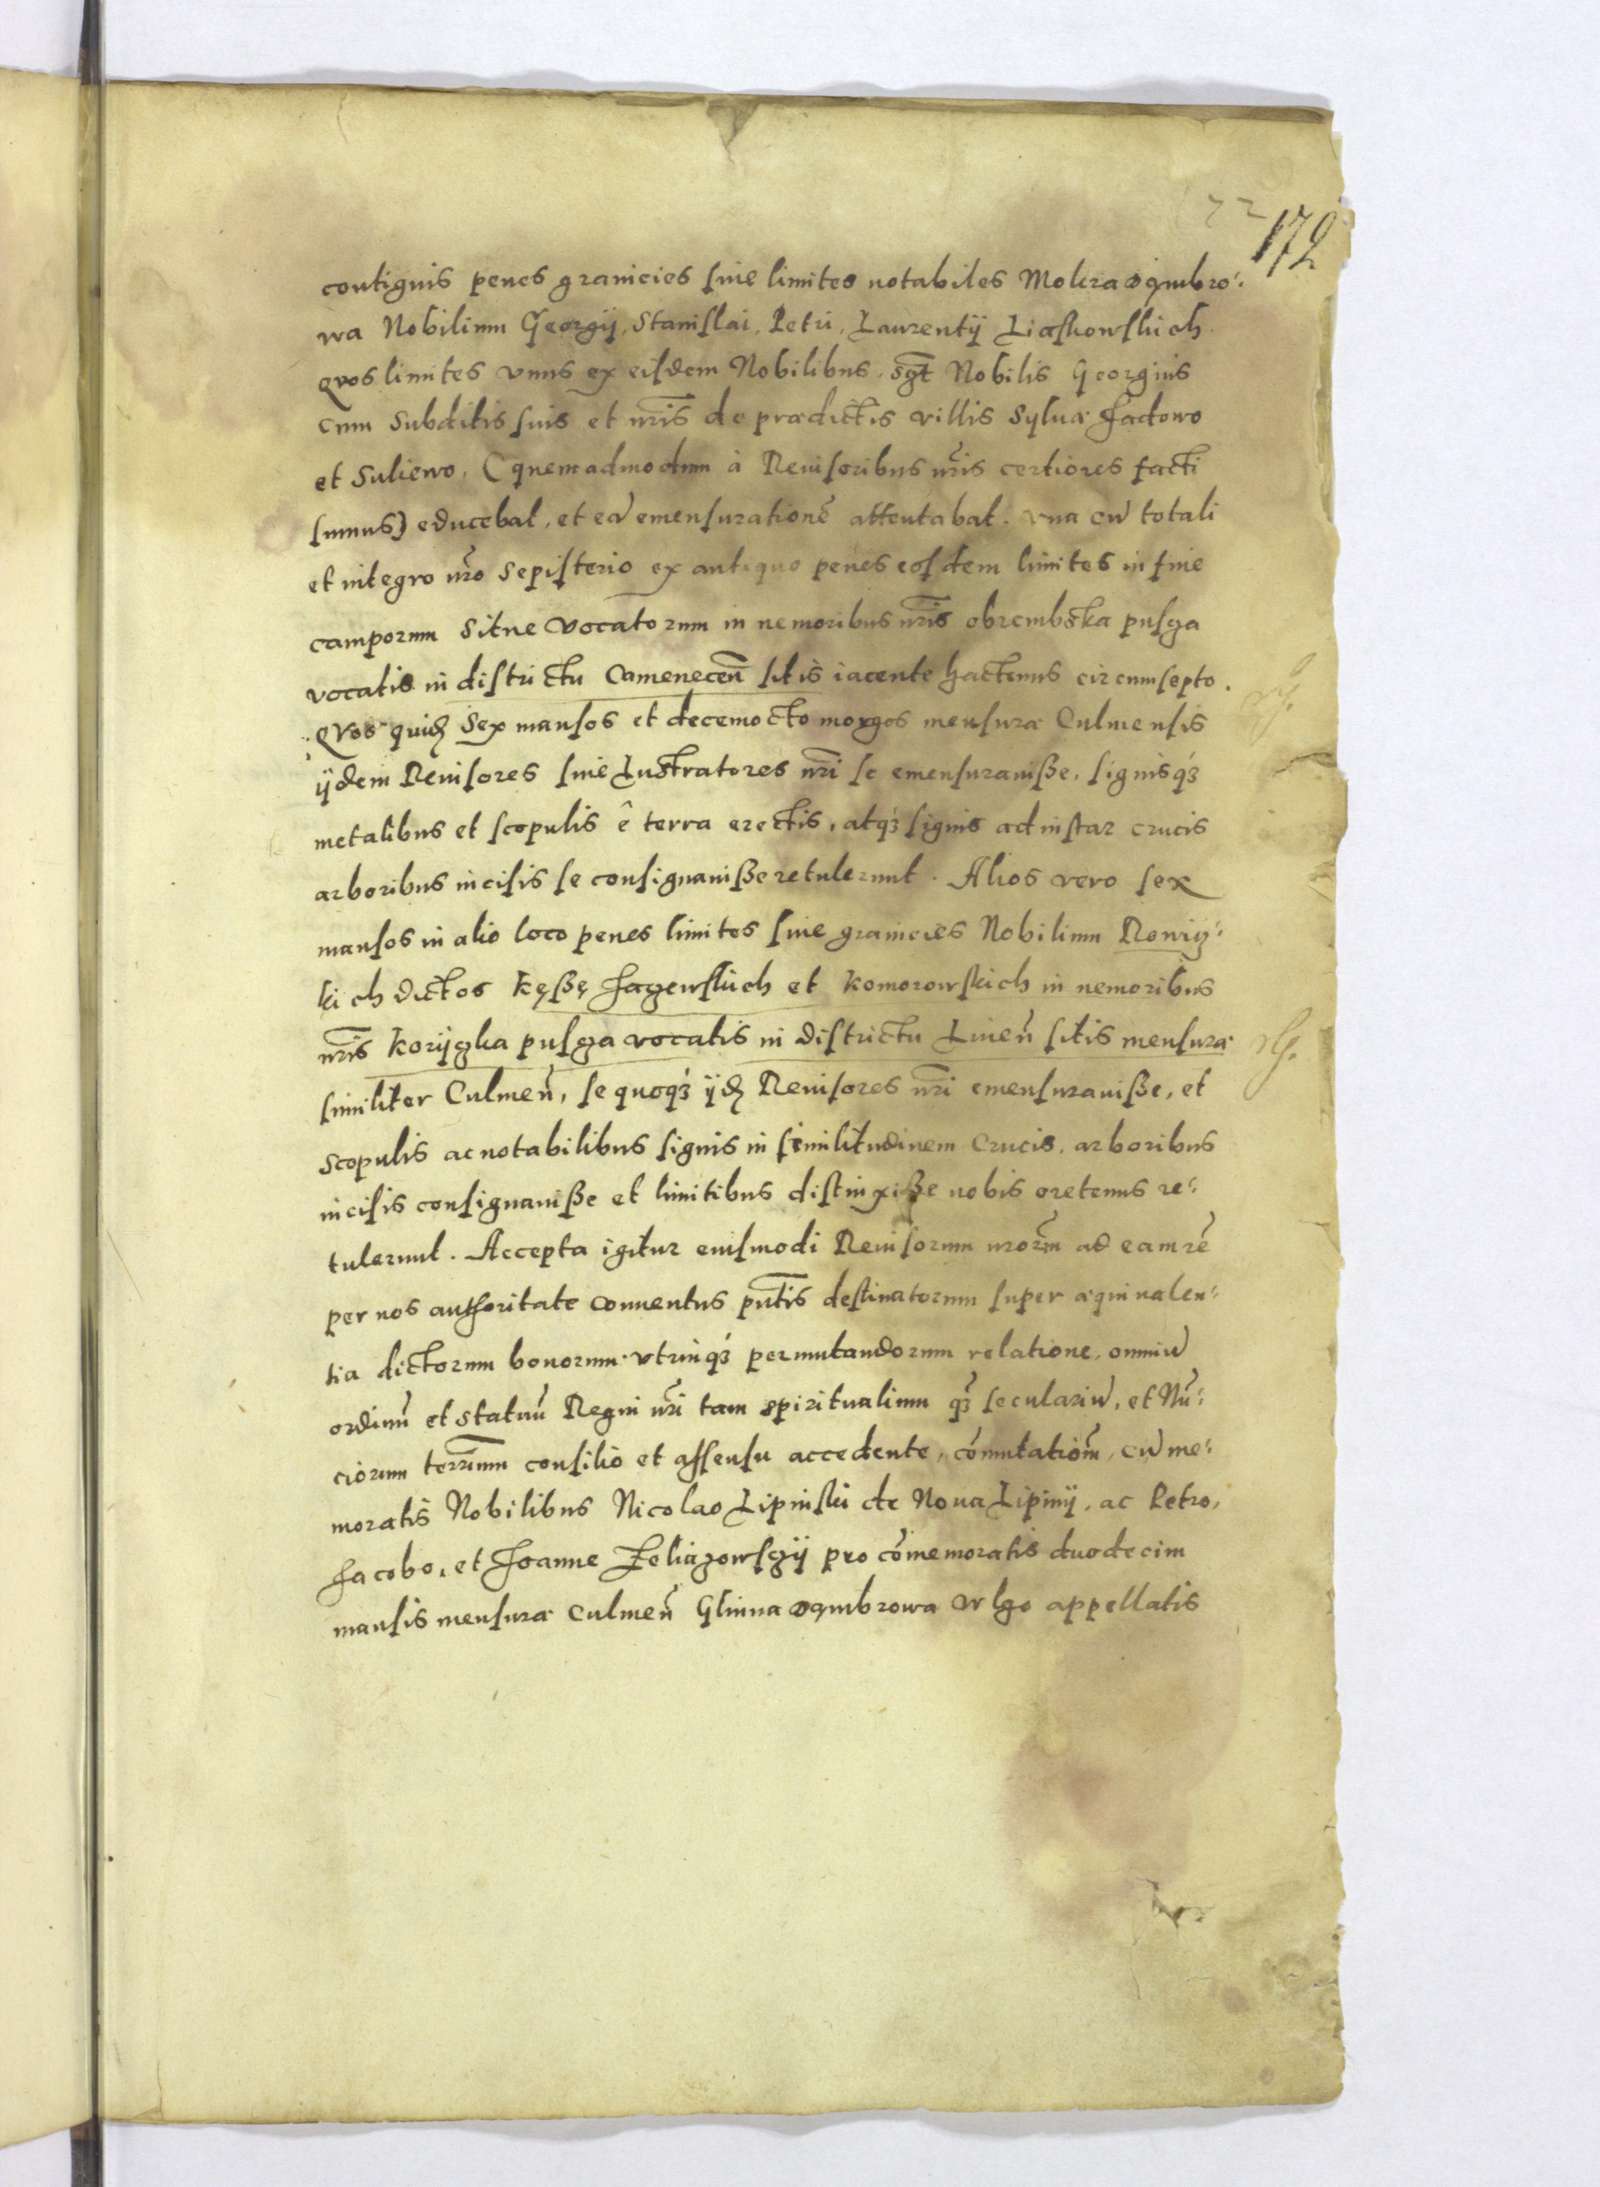 72
172
contiguis penes granicies siue limites notabiles Mokra Dąmbro:
wa Nobilium Georgij, Stanislai, Petri, Laurentij Liaskowskich.
Quos limites vnus ex eisdem Nobilibus, sḡt Nobilis Georgius
cum Subditis suis et nr̃is de prædictis villis Syluæ Jadowo
et Suliewo, (quemadmodum à Reuisoribus nr̃is certiores facti
sumus) educebat, et eā emensurationē attentabat. vna cū totali
et integro nr̃o Sepisterio ex antiquo penes eosdem limites in fine
camporum Sitne vocatorum in nemoribus nr̃is obrembska pusga
vocatis in districtu Camenecen̄ sitis iacente hactenus circumsepto.
Quos quid Sex mansos et decemocto morgos mensuræ Culmensis
ijdem Reuisores siue Lustratores nr̃i se emensurauisse, signisq́ȝ
metalibus et scopulis ê terra erectis, atq́ȝ signis ad instar crucis
arboribus incisis se consignauisse retulerunt. Alios vero sex
mansos in alio loco penes limites siue granicies Nobilium Rowij:
kich dictos Kęssę Jagewskich et Komorowskich in nemoribus
nr̃is Korijtka pusga vocatis in districtu Liuen̄ sitis mensuræ
similiter Culmen̄, se quoq́ȝ ijd Reuisores nr̃i emensurauisse, et
scopulis ac notabilibus signis in similitudinem Crucis, arboribus
incisis consignauisse et limitibus distinxisse nobis oretenus re:
tulerunt. Accepta igitur eiusmodi Reuisorum nror̃m ad eam rē
per nos authoritate conuentus pn̄tis destinatorum super æquiualen:
tia dictorum bonorum vtrinq́ȝ permutandorum relatione, omniū
ordinū et statuū Regni nr̃i tam spiritualium q̄ȝ seculariū, et Nū:
ciorum terr̃mm consilio et assensu accedente, cōmutatiōm, cū me:
moratis Nobilibus Nicolao Lipinski de Noua Lipinij, ac Petro,
Jacobo, et Joanne Zeliazowscij pro cōmemoratis duodecim
mansis mensuræ Culmen̄ Glinna Dąmbrowa vlgo appellatis